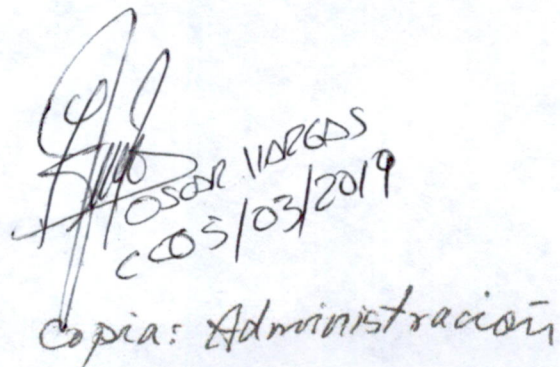 OSCAR VARGAS
CC05/03/2019
Copia: Administración